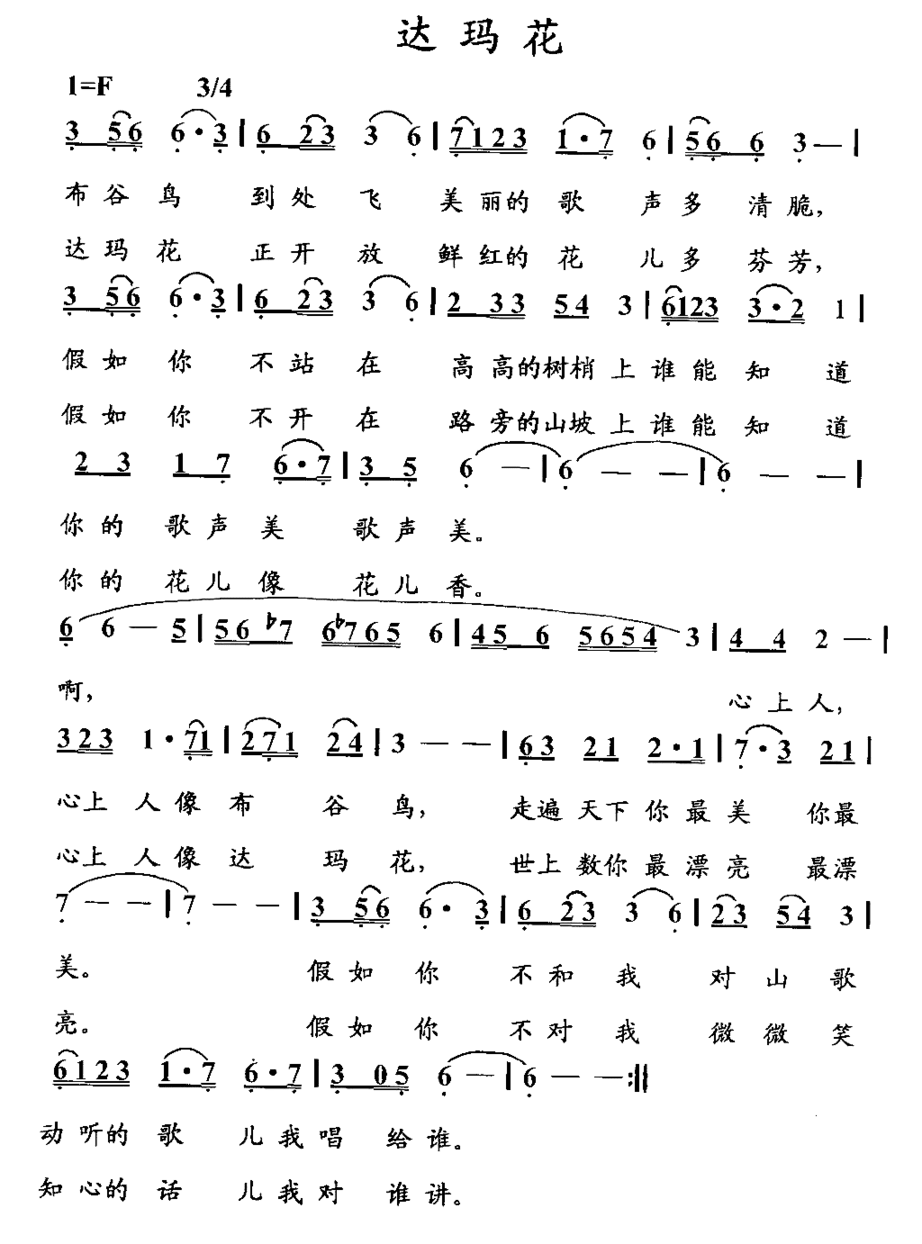 达玛花
1=F 3/4
3 56 6·3 | 6 23 3 6 | 7123 1·7 6 | 56 6 3 — |
布谷鸟 到处飞 美丽的歌 声多清脆,
达玛花 正开放 鲜红的花 儿多芬芳,
3 56 6·3 | 6 23 3 6 | 2 33 54 3 | 6123 3·2 1 |
假如你 不站在 高高的树梢上谁能知道
假如你 不开在 路旁的山坡上谁能知道
2 3 1 7 6·7 | 3 5 6 — | 6 — — | 6 — — |
你的歌声美 歌声美。
你的花儿像 花儿香。
6 6 — 5 | 56 ♭7 6♭765 6 | 45 6 5654 3 | 4 4 2 — |
啊, 心上人,
323 1·71 | 271 24 | 3 — — | 63 21 2·1 | 7·3 21 |
心上人像布谷鸟, 走遍天下你最美 你最
心上人像达玛花, 世上数你最漂亮 最漂
7 — — | 7 — — | 3 56 6·3 | 6 23 3 6 | 23 54 3 |
美。 假如你 不和我 对山歌
亮。 假如你 不对我 微微笑
6123 1·7 6·7 | 3 05 6 — | 6 — — :||
动听的歌 儿我唱 给谁。
知心的话 儿我对 谁讲。